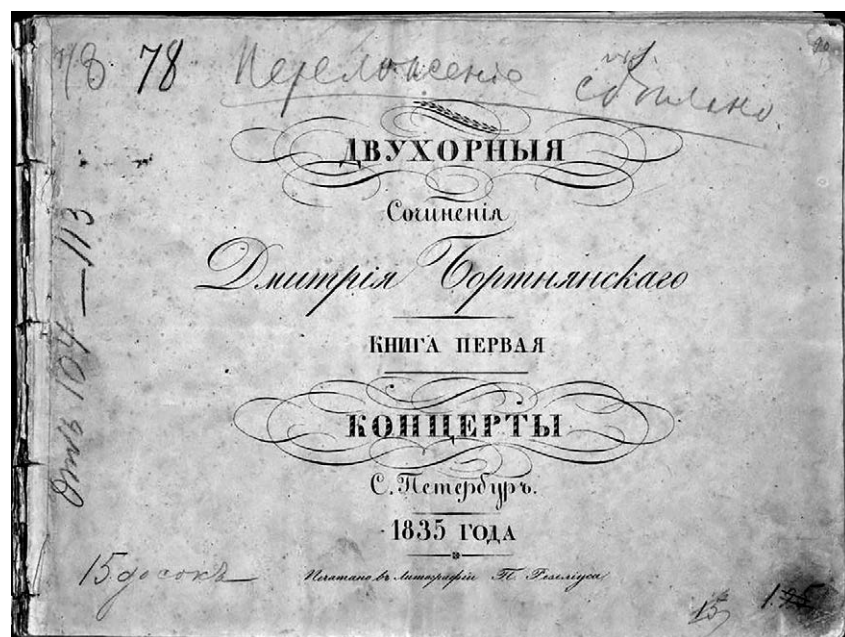 78 78 Переложенiя
сдѣлано
ДВУХОРНЫЯ
Сочиненія
Дмитрія Бортнянскаго
КНИГА ПЕРВАЯ
КОНЦЕРТЫ
С. Петербургъ.
1835 ГОДА
Печатано въ Литографіи П.
104 — 113
15 досокъ
15